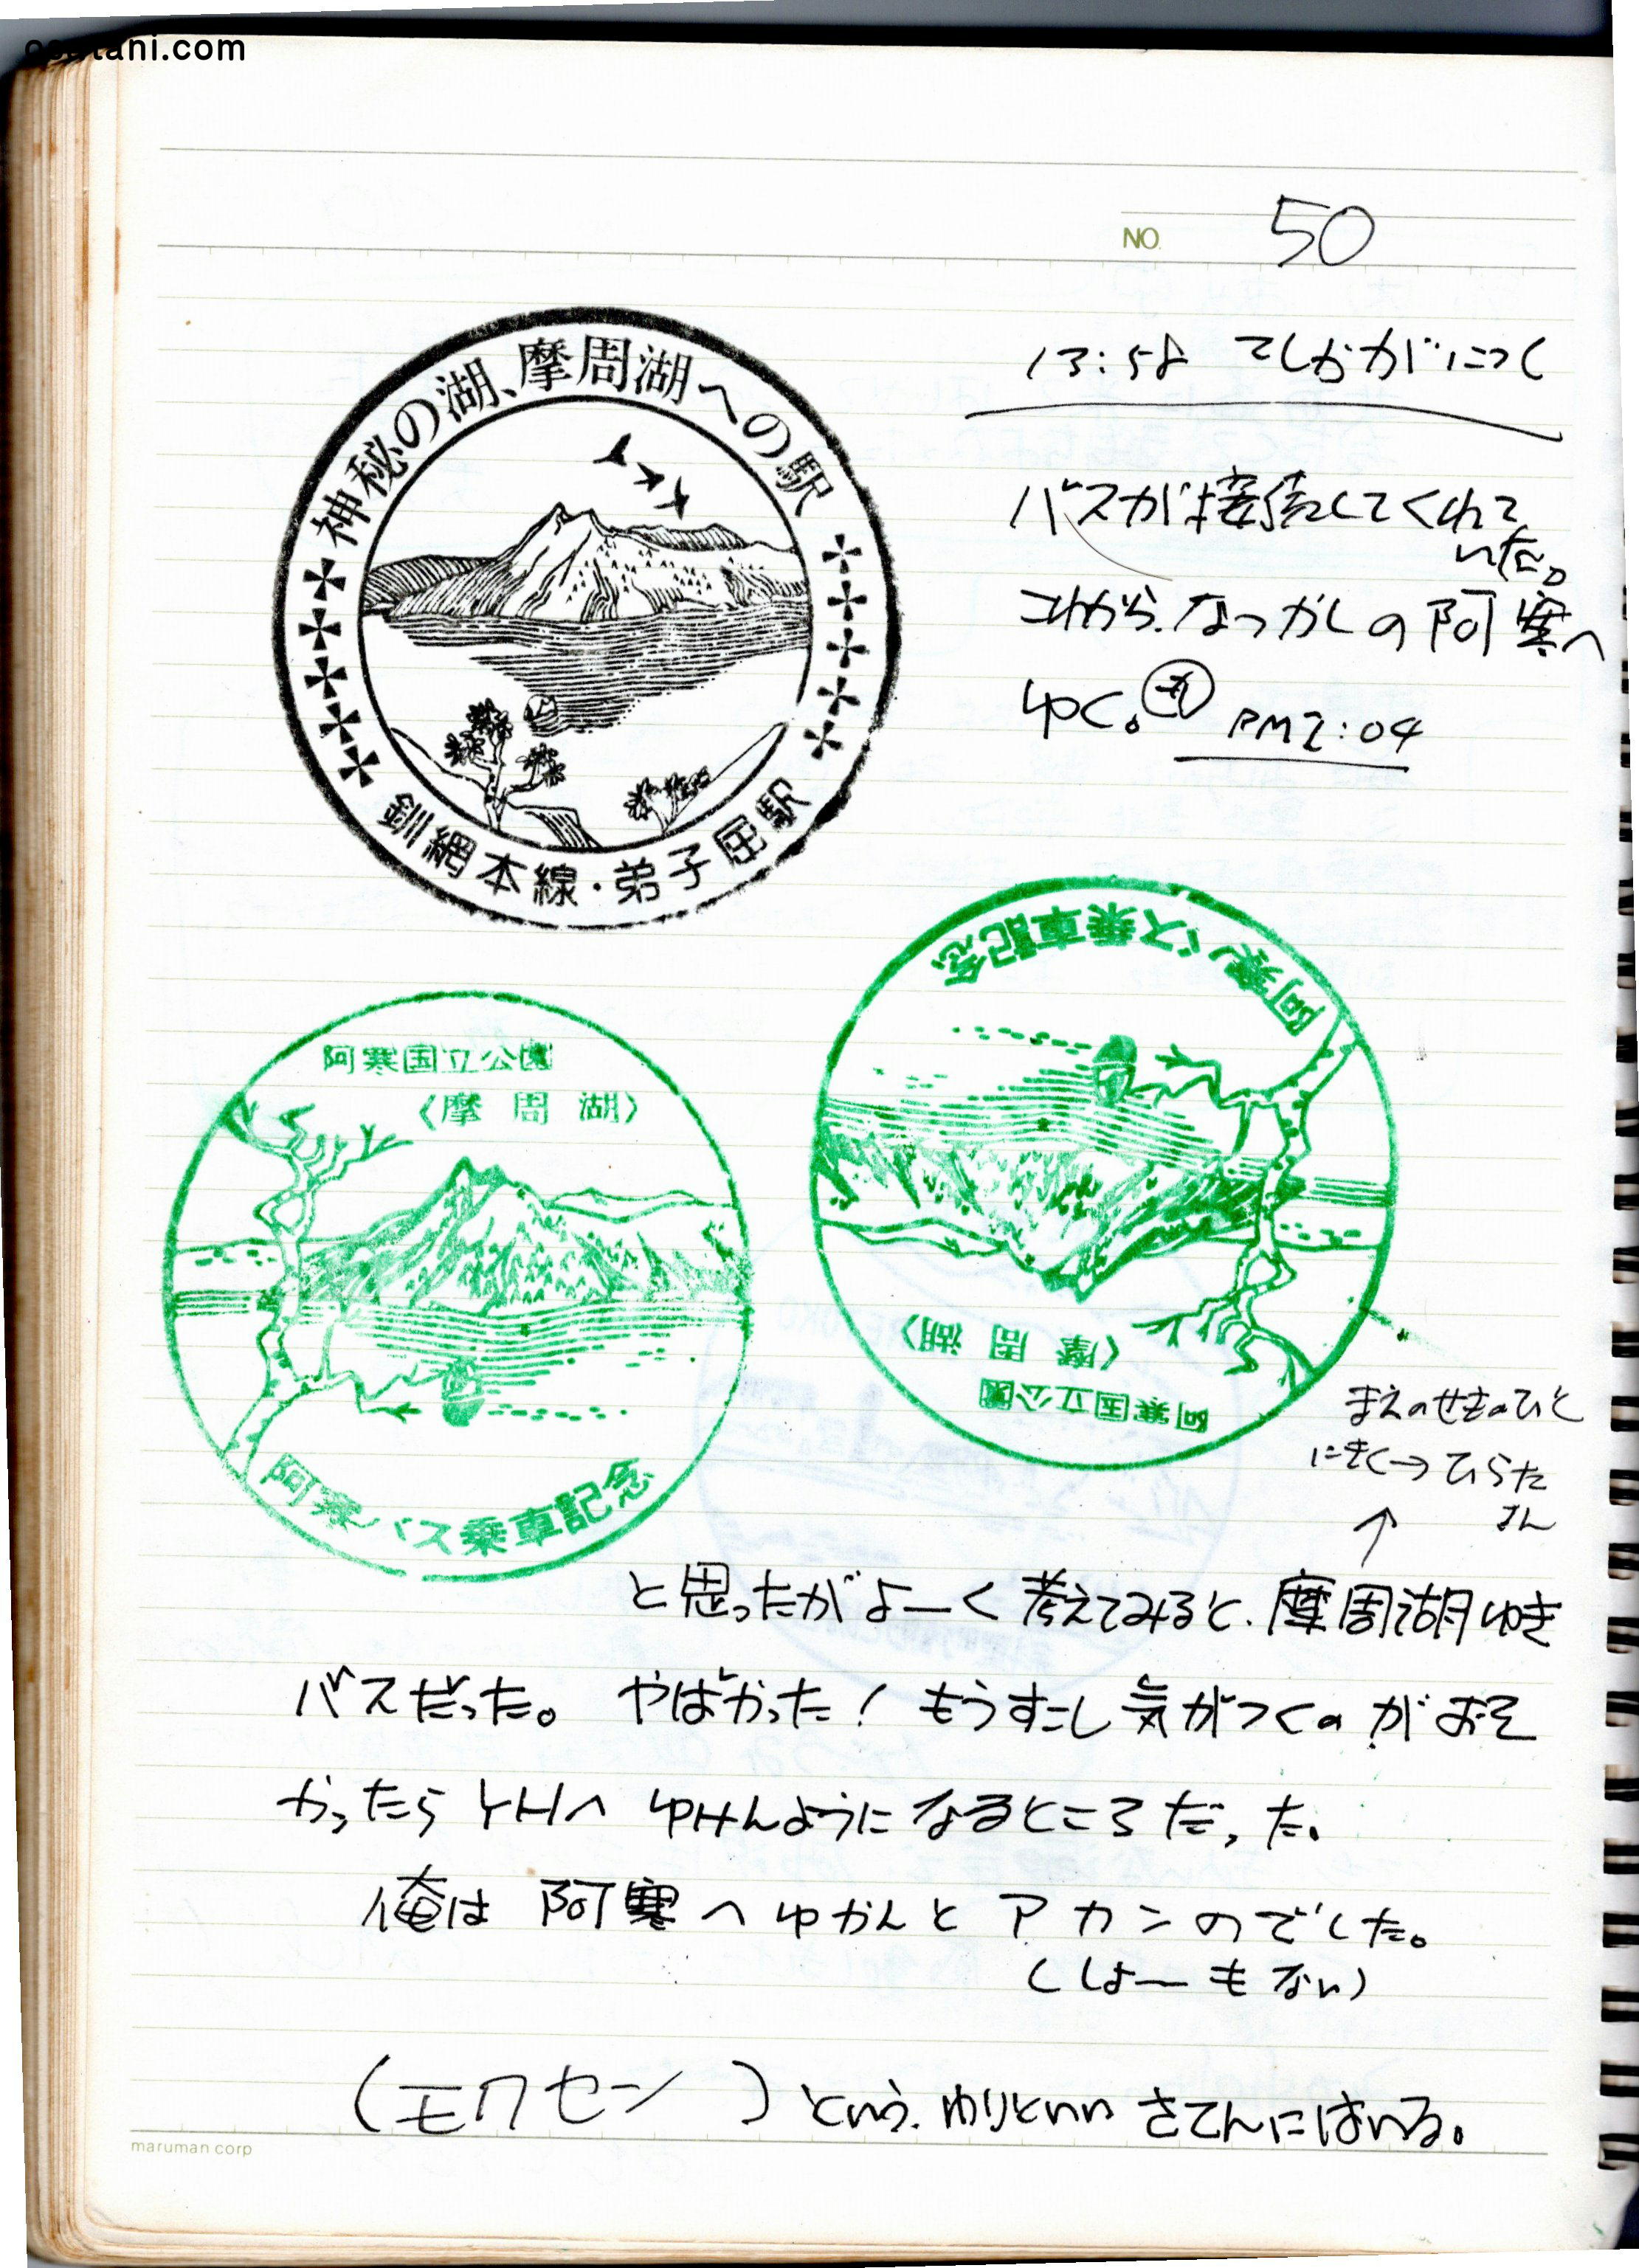 osutani.com
NO. 50
神秘の湖、摩周湖への駅
釧網本線・弟子屈駅
13:58 てしかがにつく
バスが接続してくれて
いた。
これから、なつかしの阿寒へ
ゆく。 PM2:04
阿寒国立公園
〈摩周湖〉
阿寒バス乗車記念
阿寒バス乗車記念
〈摩周湖〉
阿寒国立公園
まえのせきのひと
にきく→ひらた
さん
↑
と思ったがよーく考えてみると、摩周湖ゆき
バスだった。 やばかった! もうすこし気がつくのがおそ
かったらYHへゆけんようになるところだった。
俺は阿寒へゆかんとアカンのでした。
(しょーもない)
(モワセン )という、わりといいさてんにはいる。
maruman corp